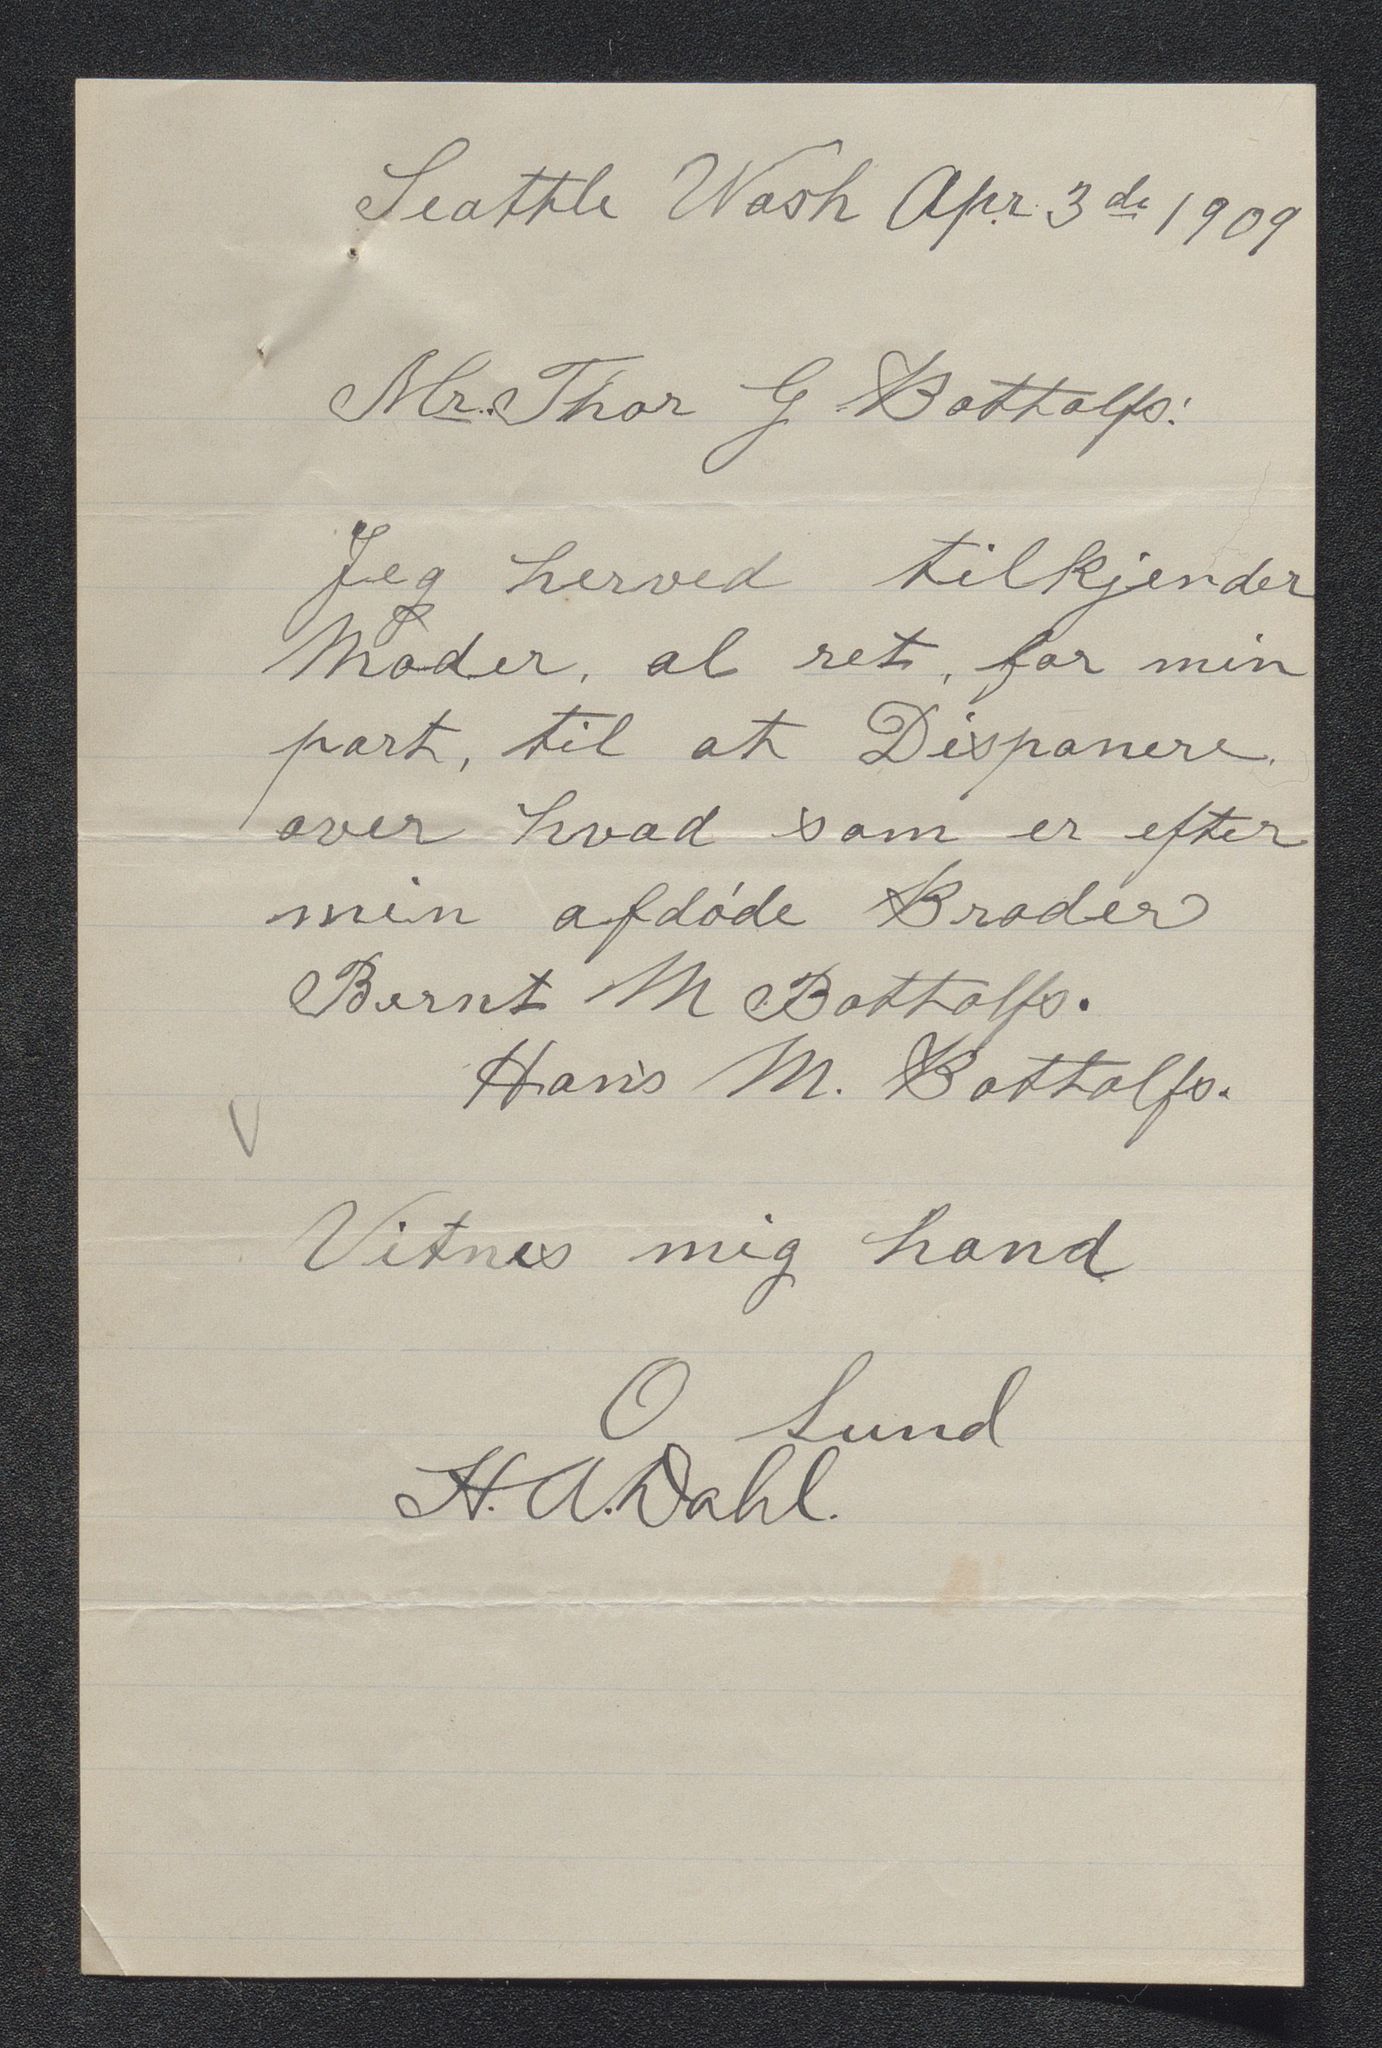 Seattle Wash Apr. 3de 1909
Mr. Thor G Bottolfs:
Jeg herved tilkjender
Moder, al ret, for min
part, til at Disponere
over hvad som er efter
min afdóde Broder
Bernt M Bottolfs.
Hans M. Bottolfs.
Vitnes mig hand
O Lund
H. A. Dahl.